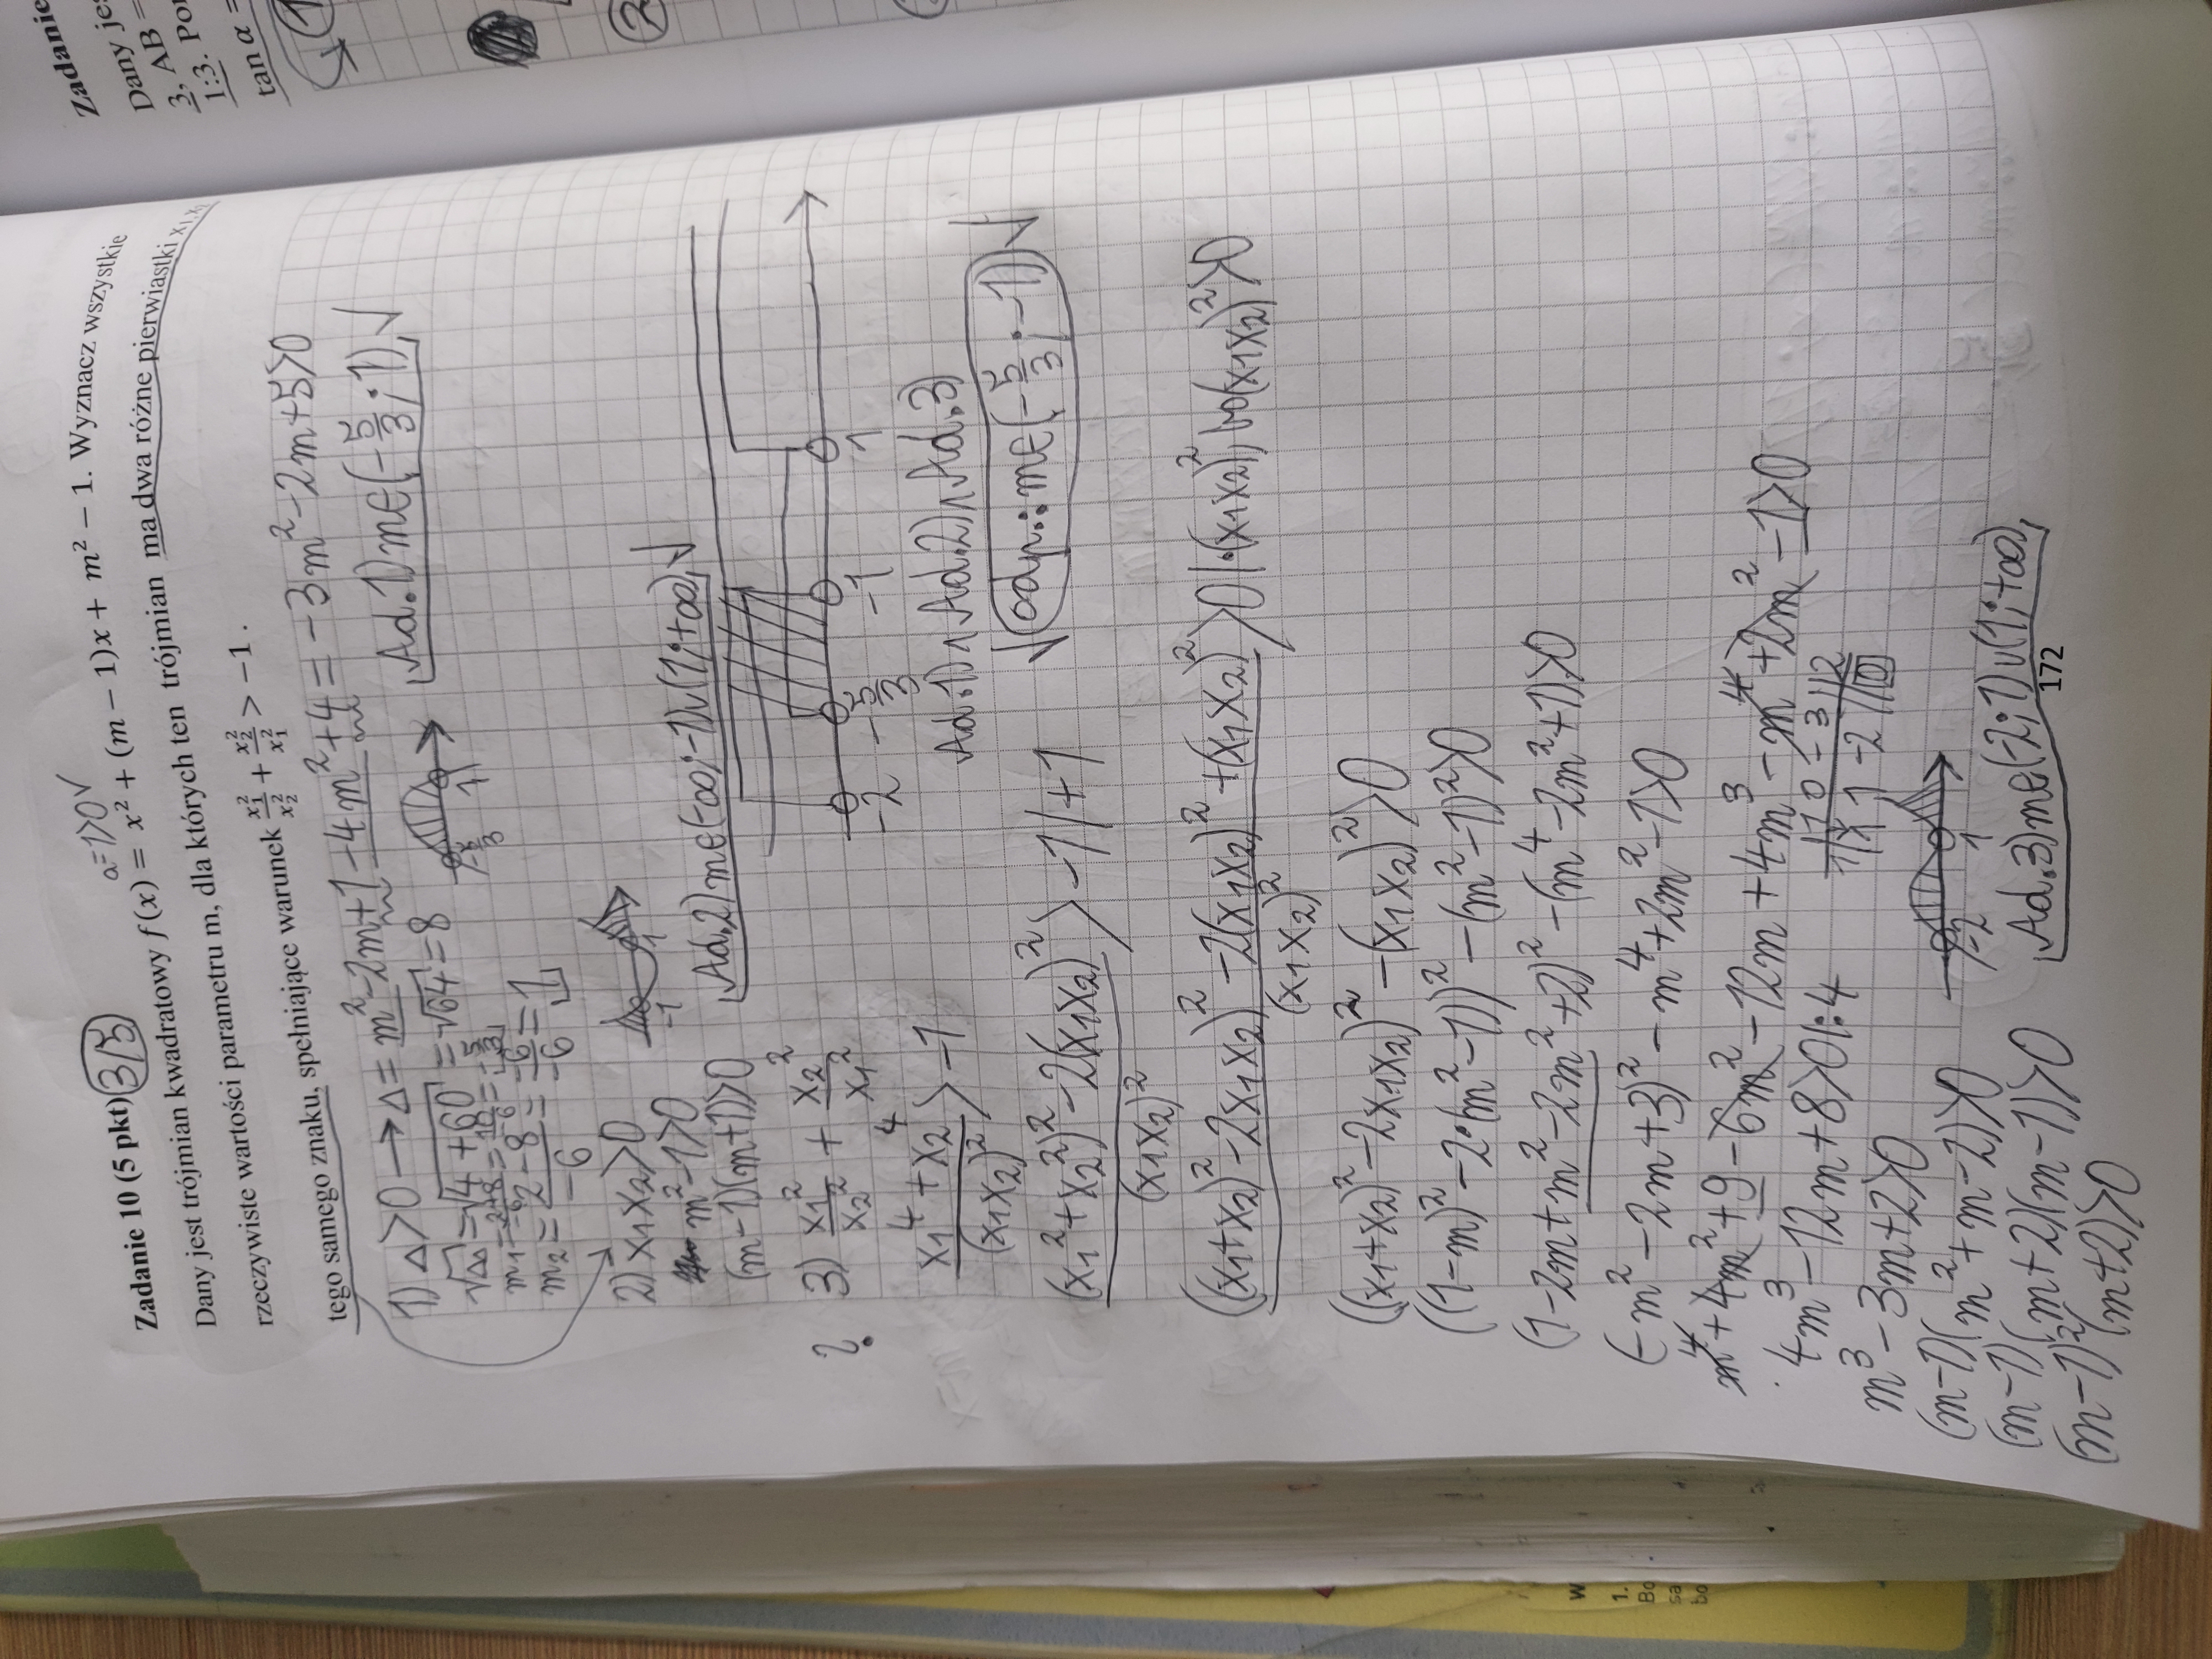 Zadanie 10 (5 pkt) 3/5
a=1>0 √
Dany jest trójmian kwadratowy f(x) = x² + (m − 1)x + m² − 1. Wyznacz wszystkie
rzeczywiste wartości parametru m, dla których ten trójmian ma dwa różne pierwiastki x₁, x₂
tego samego znaku, spełniające warunek x₁²/x₂² + x₂²/x₁² > −1 .
1) Δ>0 → Δ = m²-2m+1-4m²+4 = -3m²-2m+5>0
√Δ = √4+60 = √64 = 8
m₁ = 2+8/-6 = 10/-6 = -5/3
m₂ = 2-8/-6 = -6/-6 = 1
-5/3 1
Ad.1) m∈(-5/3;1) √
2) x₁x₂>0
m²-1>0
(m-1)(m+1)>0
-1 1
Ad.2) m∈(-∞;-1)∪(1;+∞) √
? 3) x₁²/x₂² + x₂²/x₁²
x₁⁴+x₂⁴/(x₁x₂)² > -1
-2 -5/3 -1 1
Ad.1) ∧ Ad.2) ∧ Ad.3)
√ odp.: m∈(-5/3;-1) √
(x₁²+x₂²)²-2(x₁x₂)²/(x₁x₂)² > -1 /+1
((x₁+x₂)²-2x₁x₂)²-2(x₁x₂)²+(x₁x₂)²/(x₁x₂)² >0 |·(x₁x₂)², bo (x₁x₂)²>0
((x₁+x₂)²-2x₁x₂)²-(x₁x₂)²>0
((1-m)²-2·(m²-1))²-(m²-1)²>0
(1-2m+m²-2m²+2)²-(m⁴-2m²+1)>0
(-m²-2m+3)²-m⁴+2m²-1>0
m⁴+4m²+9-6m²-12m+4m³-m⁴+2m²-1>0
4m³-12m+8>0 |:4
m³-3m+2>0
1 0 -3 2
1 x 1 -2 0
(m-1)(m²+m-2)>0
(m-1)(m+2)(m-1)>0
(m-1)²(m+2)>0
-2 1
Ad.3) m∈(-2;1)∪(1;+∞)
172
Zadanie
Dany je
3, AB =
1:3. Po
tan α =
1
2
w
1.
Bo
sa
bo